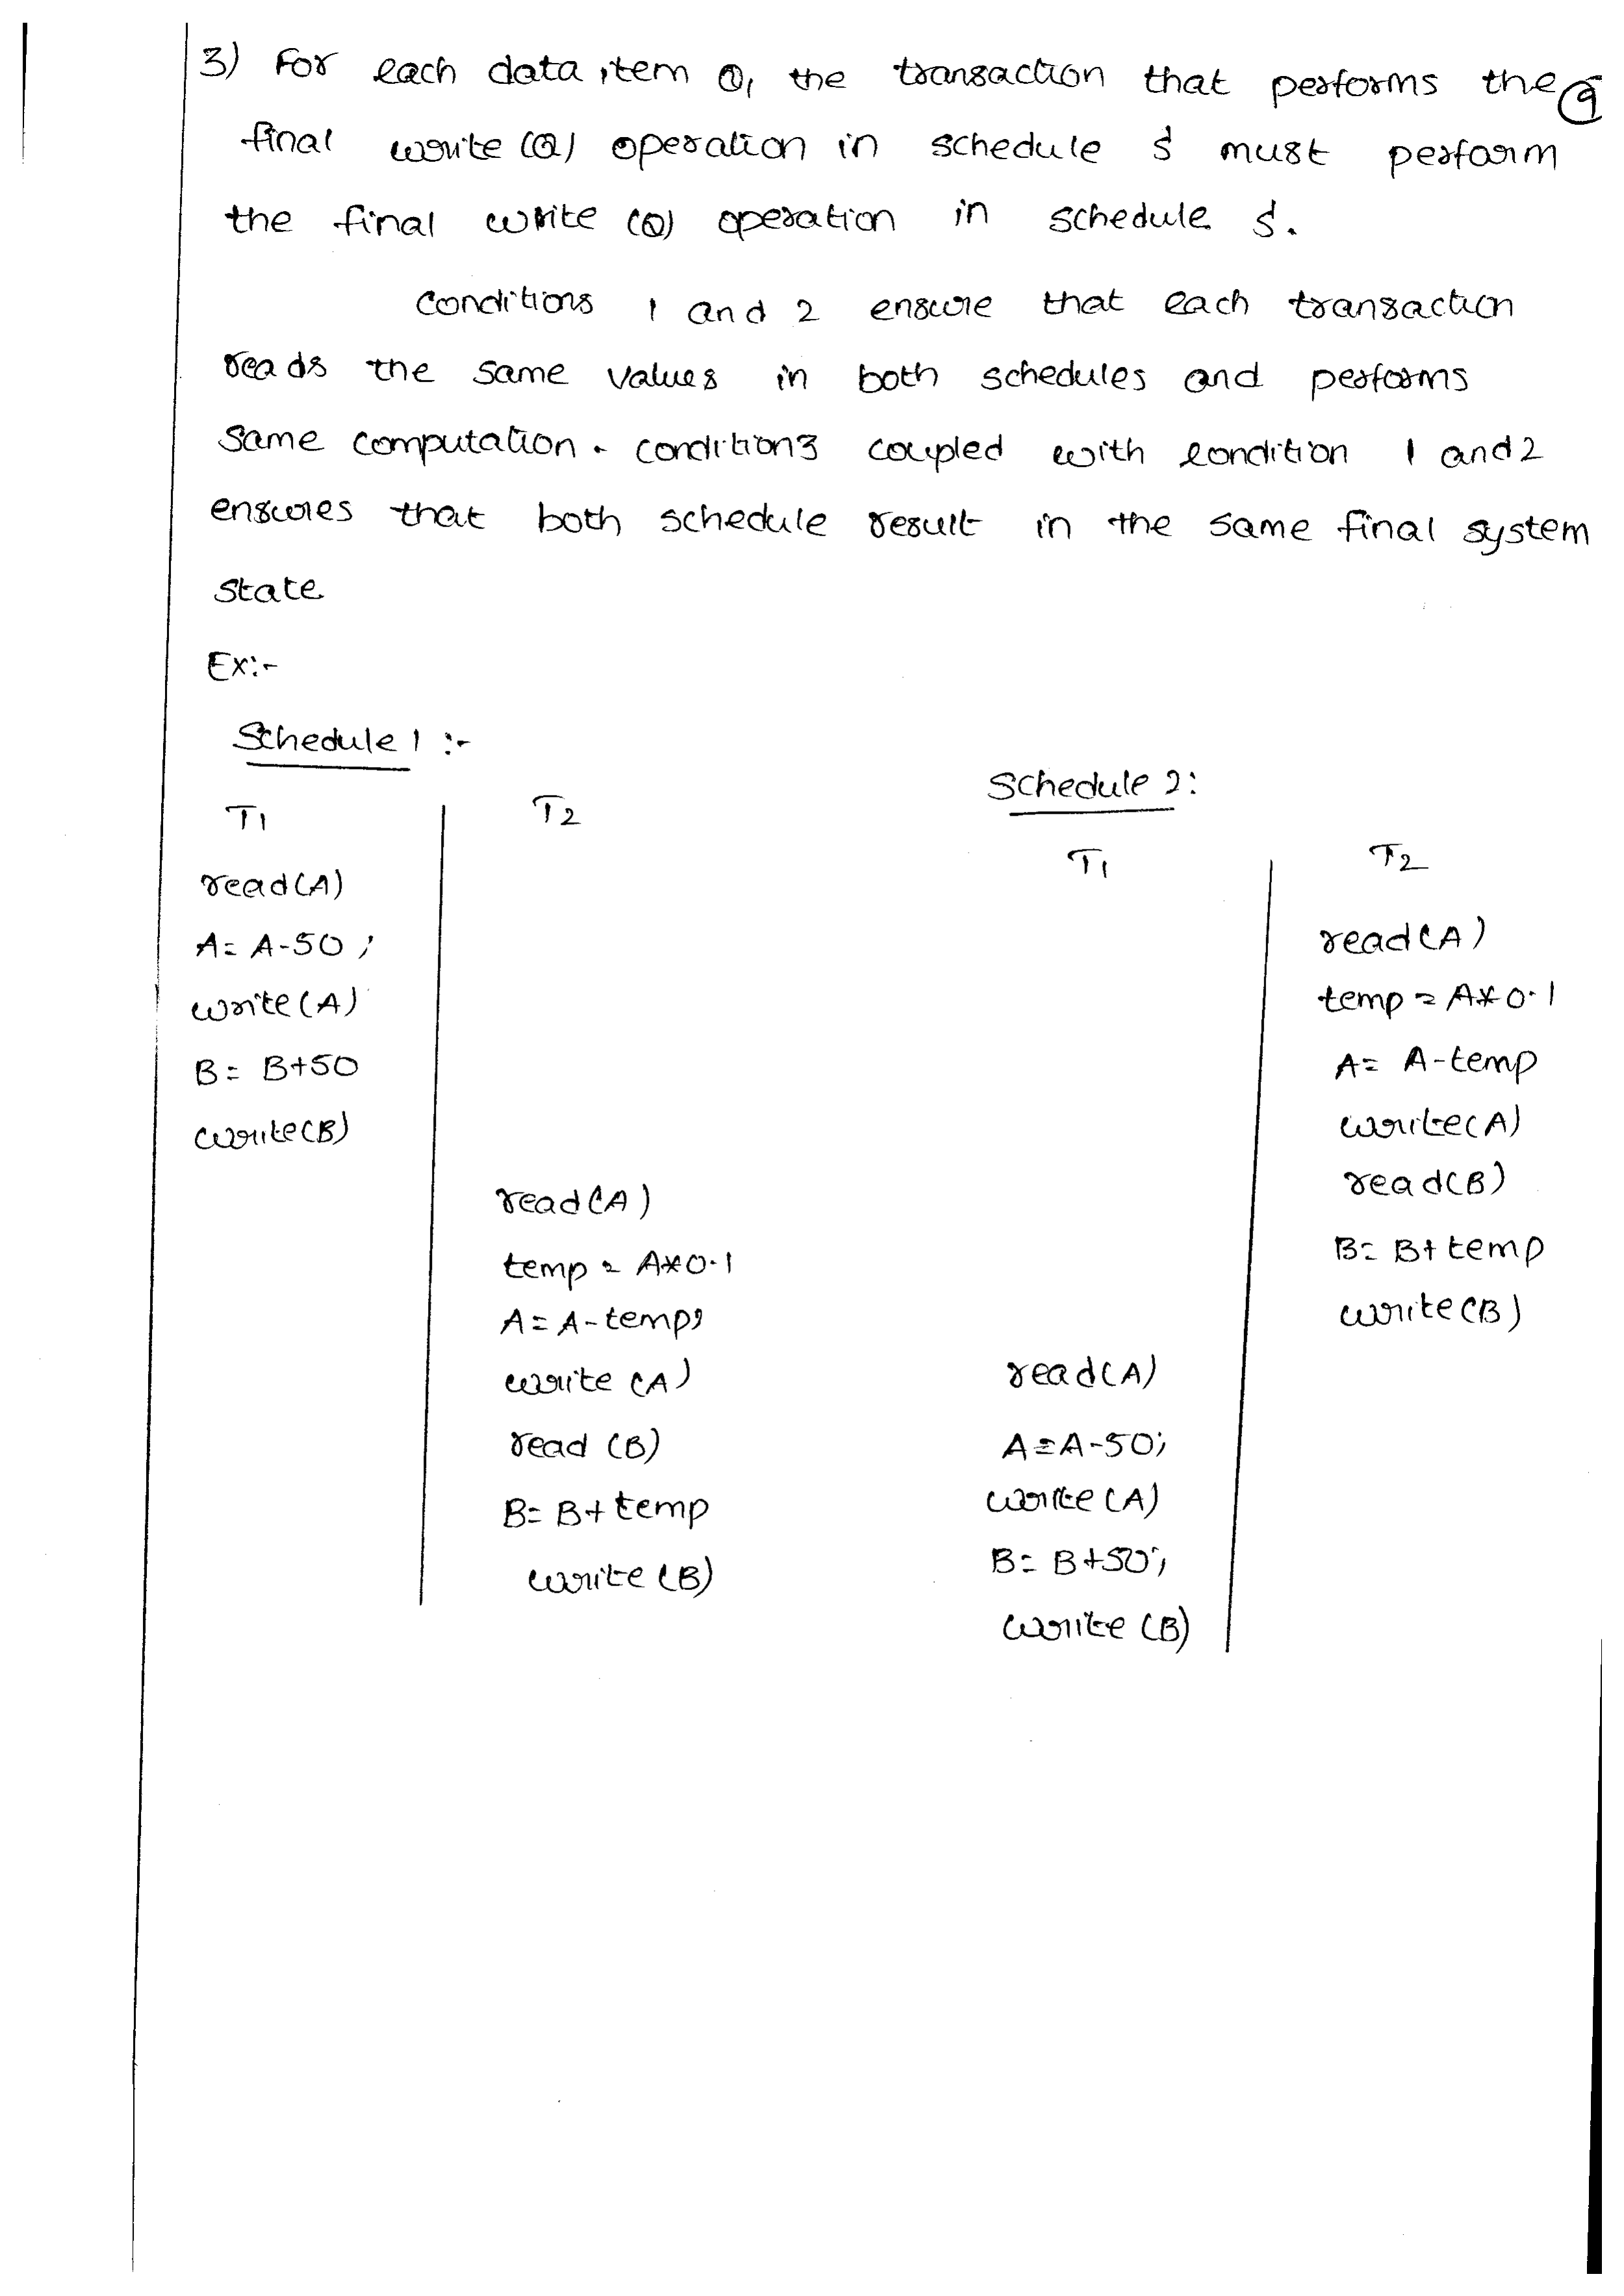 3) For each data item Q, the transaction that performs the
9
final write (Q) operation in schedule S must perform
the final write (Q) operation in schedule S.
Conditions 1 and 2 ensure that each transaction
reads the same values in both schedules and performs
same computation. condition3 coupled with condition 1 and 2
ensures that both schedule result in the same final system
state
Ex:-
Schedule 1 :-
T1 T2
read(A)
A= A-50;
write(A)
B= B+50
write(B)
read(A)
temp = A*0.1
A= A-temp;
write (A)
read (B)
B= B+ temp
write (B)
Schedule 2:
T1 T2
read(A)
temp = A*0.1
A= A-temp
write(A)
read(B)
B= B+ temp
write(B)
read(A)
A=A-50;
write (A)
B= B+50;
write (B)